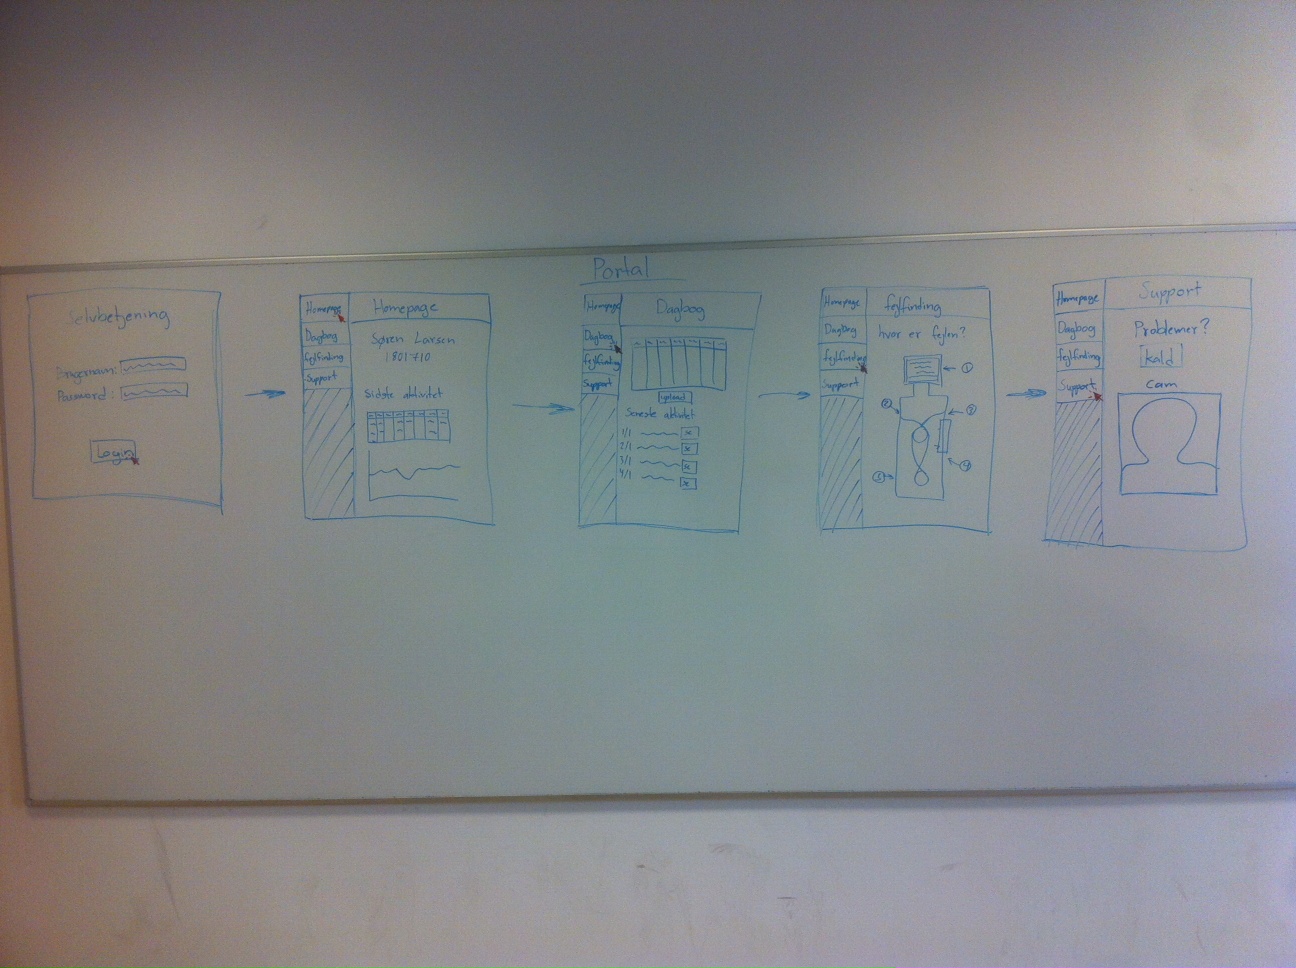 Portal
Selvbetjening
Brugernavn:
Password:
Login
Homepage
Dagbog
fejlfinding
Support
Homepage
Søren Larsen
1801710
Sidste aktivitet
Homepage
Dagbog
fejlfinding
Support
Dagbog
upload
Seneste aktivitet
1/1 x
2/1 x
3/1 x
4/1 x
Homepage
Dagbog
fejlfinding
Support
fejlfinding
hvor er fejlen?
1
2
3
4
Homepage
Dagbog
fejlfinding
Support
Support
Problemer?
kald
cam